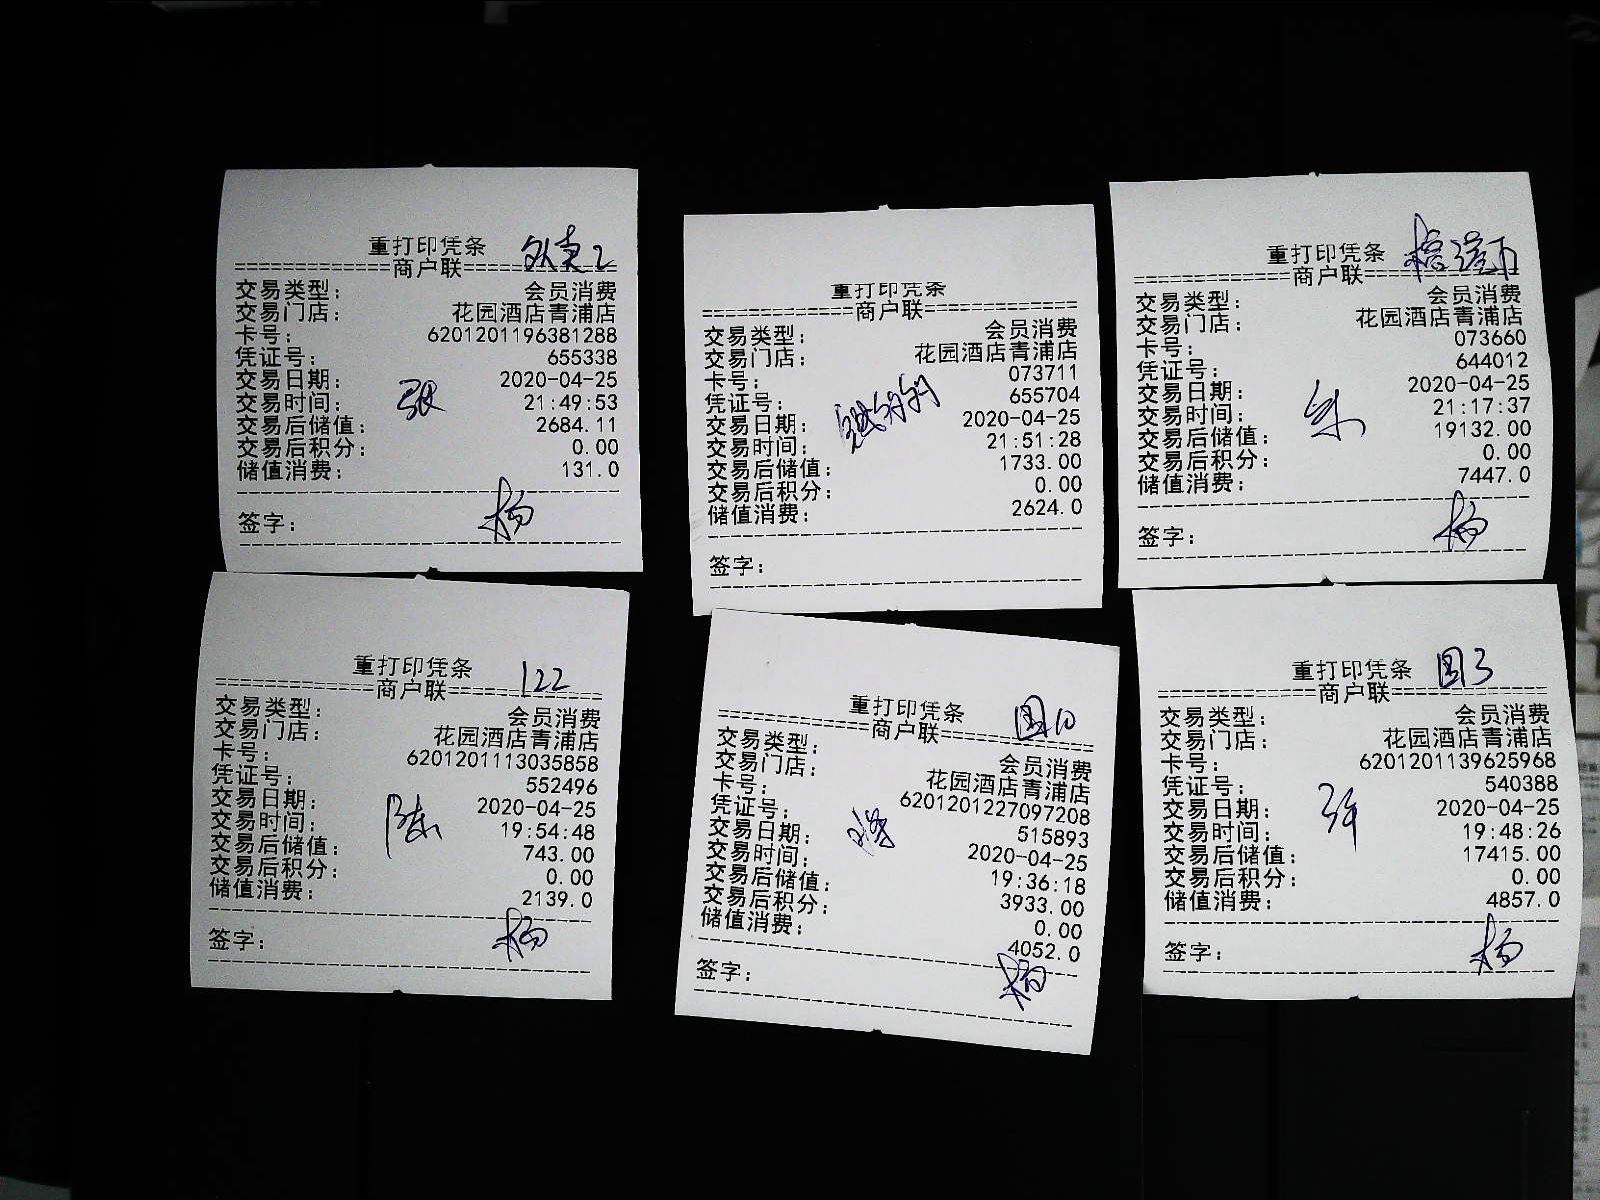 重打印凭条
================商户联================
交易类型： 会员消费
交易门店： 花园酒店青浦店
卡号： 6201201196381288
凭证号： 655338
交易日期： 2020-04-25
交易时间： 21:49:53
交易后储值： 2684.11
交易后积分： 0.00
储值消费： 131.0
签字： 杨
重打印凭条
================商户联================
交易类型： 会员消费
交易门店： 花园酒店青浦店
卡号： 073711
凭证号： 655704
交易日期： 2020-04-25
交易时间： 21:51:28
交易后储值： 1733.00
交易后积分： 0.00
储值消费： 2624.0
签字：
重打印凭条
================商户联================
交易类型： 会员消费
交易门店： 花园酒店青浦店
卡号： 073660
凭证号： 644012
交易日期： 2020-04-25
交易时间： 21:17:37
交易后储值： 19132.00
交易后积分： 0.00
储值消费： 7447.0
朱
签字： 杨
重打印凭条 122
================商户联================
交易类型： 会员消费
交易门店： 花园酒店青浦店
卡号： 6201201113035858
凭证号： 552496
交易日期： 2020-04-25
交易时间： 19:54:48
交易后储值： 743.00
交易后积分： 0.00
储值消费： 2139.0
陈
签字： 杨
重打印凭条 国10
================商户联================
交易类型： 会员消费
交易门店： 花园酒店青浦店
卡号： 6201201227097208
凭证号： 515893
交易日期： 2020-04-25
交易时间： 19:36:18
交易后储值： 3933.00
交易后积分： 0.00
储值消费： 4052.0
签字： 杨
重打印凭条 国3
================商户联================
交易类型： 会员消费
交易门店： 花园酒店青浦店
卡号： 6201201139625968
凭证号： 540388
交易日期： 2020-04-25
交易时间： 19:48:26
交易后储值： 17415.00
交易后积分： 0.00
储值消费： 4857.0
签字： 杨